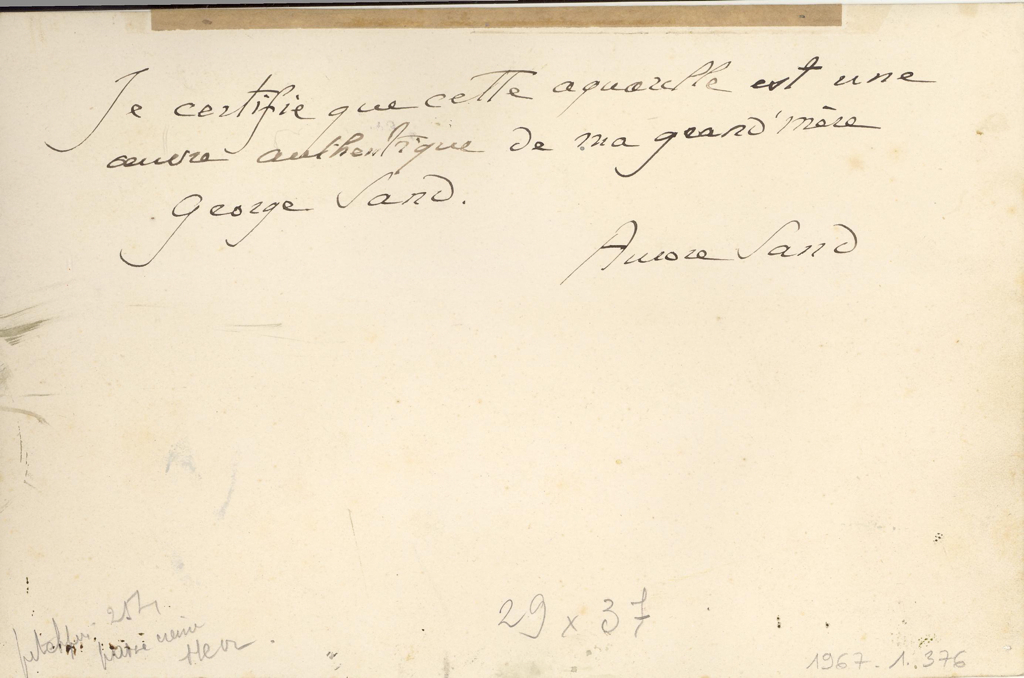 Je certifie que cette aquarelle est une
œuvre authentique de ma grand'mère
George Sand.
Aurore Sand
29 x 37
1967. 1. 376